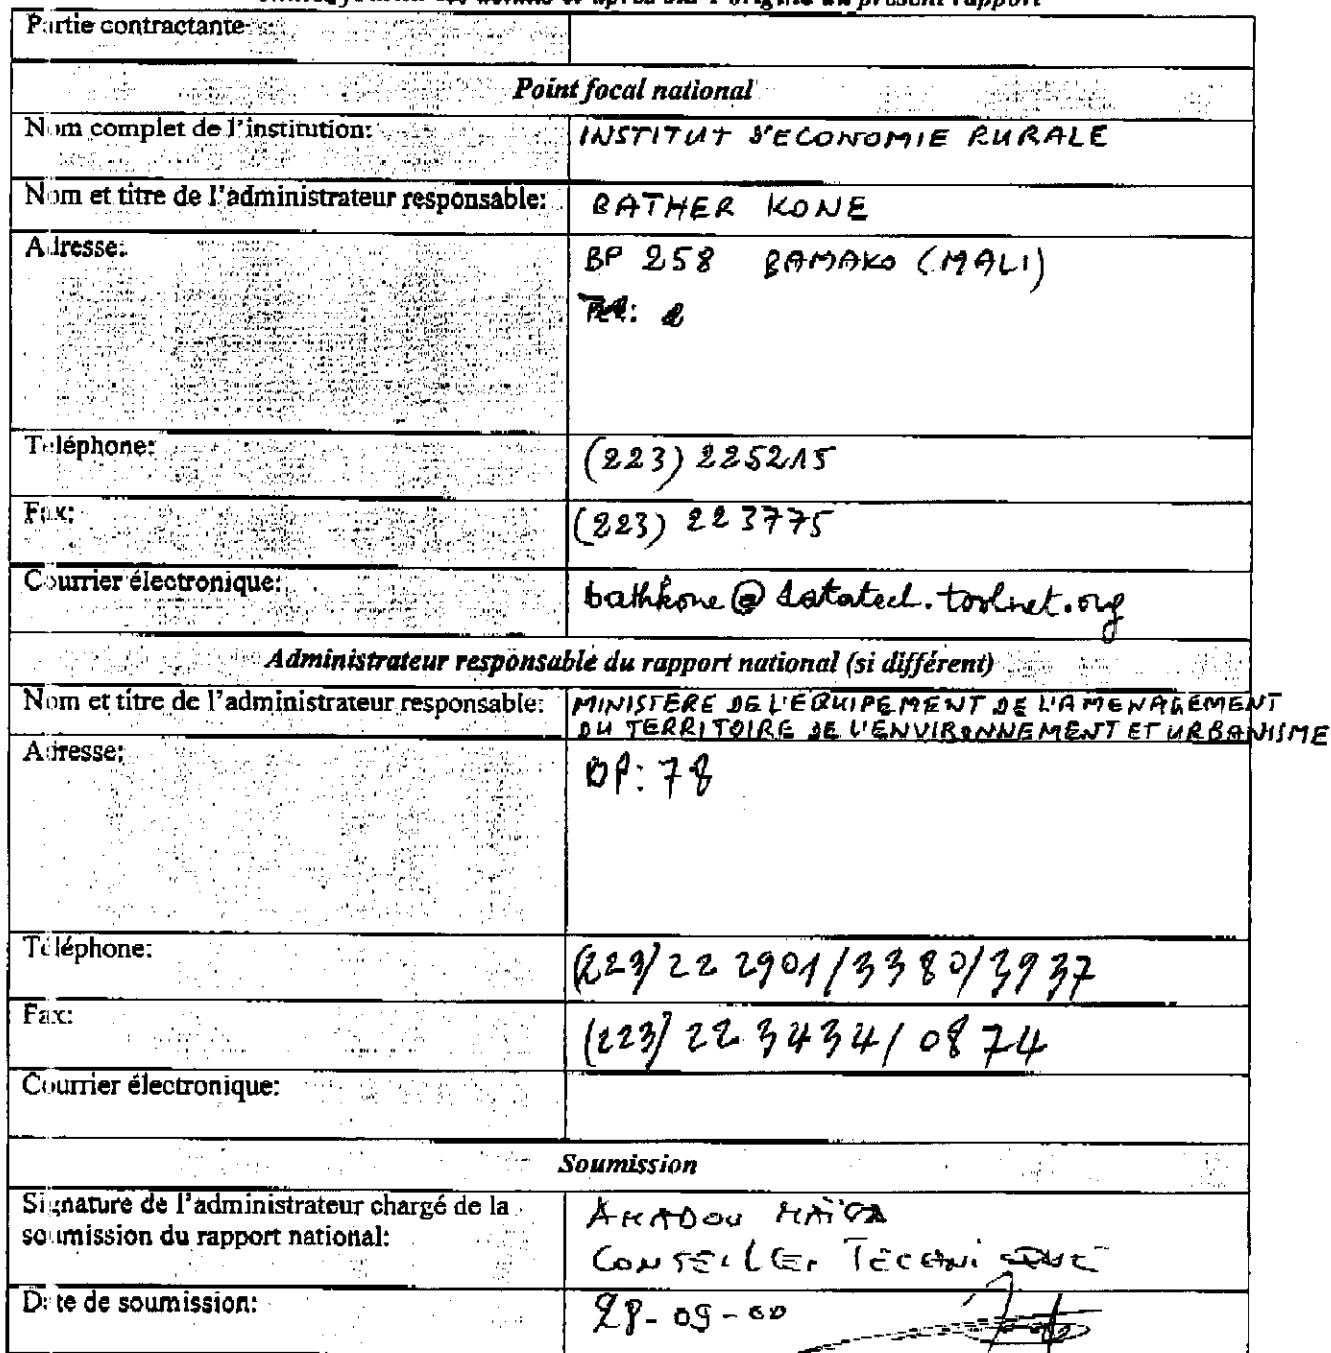 et après sur l'origine du présent rapport
Partie contractante
Point focal national
Nom complet de l'institution: INSTITUT D'ECONOMIE RURALE
Nom et titre de l'administrateur responsable: BATHER KONE
Adresse: BP 258 BAMAKO (MALI)
Téléphone: (223) 225215
Fax: (223) 223775
Courrier électronique: bathkone@datatech.toolnet.org
Administrateur responsable du rapport national (si différent)
Nom et titre de l'administrateur responsable: MINISTERE DE L'EQUIPEMENT DE L'AMENAGEMENT
DU TERRITOIRE DE L'ENVIRONNEMENT ET URBANISME
Adresse: BP: 78
Téléphone: (223) 22 2901/3380/3937
Fax: (223) 22 3434/0874
Courrier électronique:
Soumission
Signature de l'administrateur chargé de la
soumission du rapport national:
AMADOU MAÏGA
CONSEILLER TECHNIQUE
Date de soumission: 28-09-00